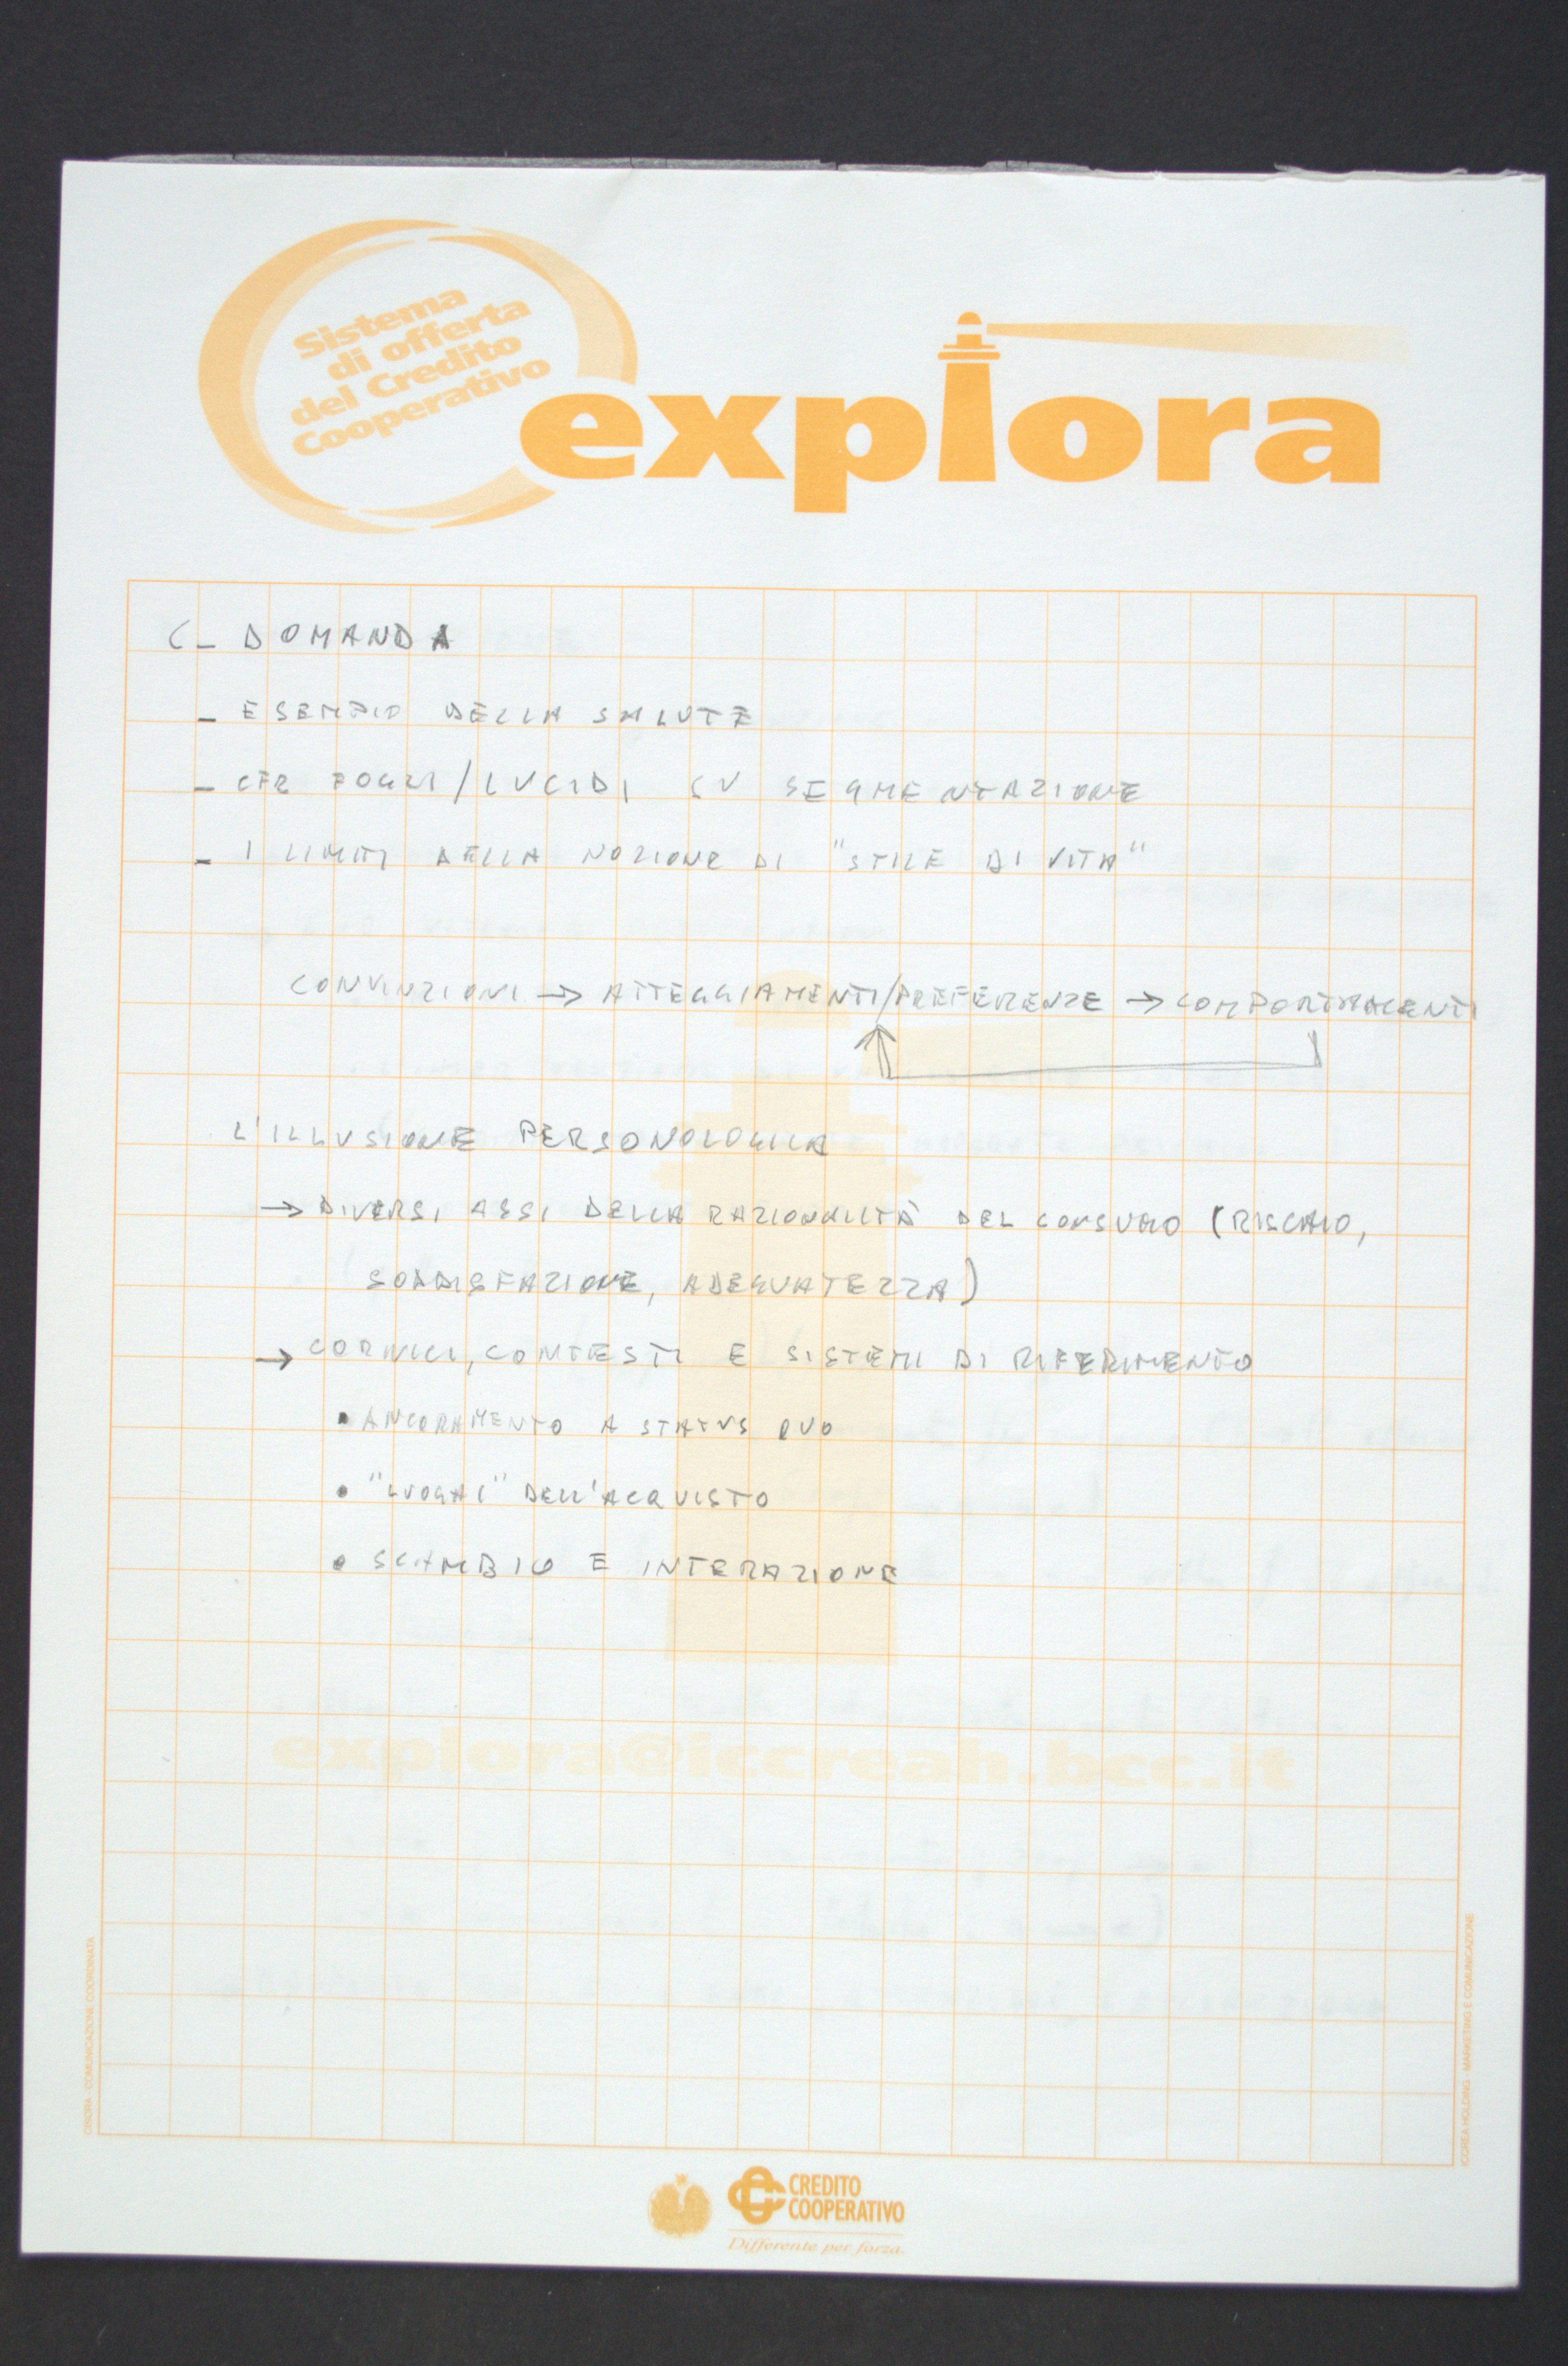 Sistema
di offerta
del Credito
Cooperativo
explora
C - DOMANDA
- ESEMPIO DELLA SALUTE
- CFR FOGLI/LUCIDI SU SEGMENTAZIONE
- I LIMITI DELLA NOZIONE DI "STILE DI VITA"
CONVINZIONI → ATTEGGIAMENTI/PREFERENZE → COMPORTAMENTI
L'ILLUSIONE PERSONOLOGICA
→ DIVERSI ASSI DELLA RAZIONALITÀ DEL CONSUMO (RISCHIO,
SODDISFAZIONE, ADEGUATEZZA)
→ CORNICI, CONTESTI E SISTEMI DI RIFERIMENTO
• ANCORAMENTO A STATUS QUO
• "LUOGHI" DELL'ACQUISTO
• SCAMBIO E INTERAZIONE
explora@iccreah.bcc.it
COMUNICAZIONE COORDINATA
ICCREA HOLDING - MARKETING E COMUNICAZIONE
CREDITO
COOPERATIVO
Differente per forza.